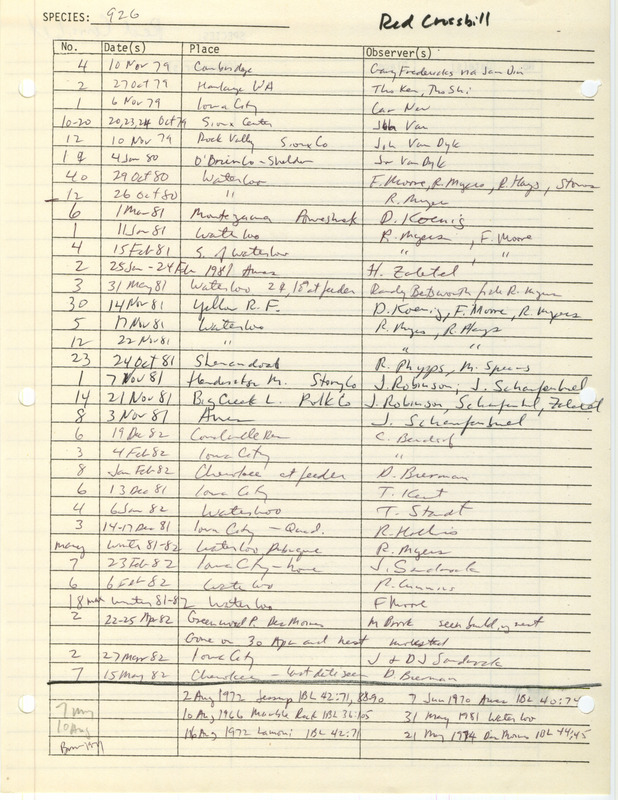 SPECIES: 926 Red Crossbill
No. Date(s) Place Observer(s)
4 10 Nov 79 Cambridge Gary Fredericks via Jim Din
2 27 Oct 79
1 6 Nov 79 Iowa City
10-20 20,23,24 Oct 79 Sioux Center John Van
12 10 Nov 79 Rock Valley Sioux Co John Van Dyk
1 ♀ 4 Jan 80 O'Brien Co - Sheldon Jn Van Dyk
40 29 Oct 80 Waterloo F. Moore, R. Myers, R. Hays, Stone
12 26 Oct 80 " R. Myers
6 1 Mar 81 Montezuma Poweshiek D. Koenig
1 11 Jan 81 Waterloo R. Myers, F. Moore
4 15 Feb 81 S. of Waterloo " "
2 25 Jan - 24 Feb 1981 Ames H. Zaletel
3 31 May 81 Waterloo 2♀, 1♂ at feeder Randy fide R. Myers
30 14 Nov 81 Yellow R. F. D. Koenig, F. Moore, R. Myers
5 17 Nov 81 Waterloo R. Myers, R. Hays
12 22 Nov 81 " " "
23 24 Oct 81 Shenandoah R. Phipps, M. Spears
1 7 Nov 81 M. Story Co J. Robinson, J. Scharfenkel
14 21 Nov 81 Big Creek L. Polk Co J. Robinson, Scharfenkel, Zaletel
8 3 Nov 81 Ames J. Scharfenkel
6 19 Dec 82 C. Bendorf
3 4 Feb 82 Iowa City "
8 Jan Feb 82 Cherokee at feeder D. Bierman
6 13 Dec 81 Iowa City T. Kent
4 6 Jan 82 Waterloo T. Stadt
3 14-17 Dec 81 Iowa City - Quad. R. Hollis
many winter 81-82 Waterloo Dubuque R. Myers
7 23 Feb 82 Iowa City - home J. Sandrock
6 6 Feb 82 Waterloo R. Cummins
18 max winter 81-82 Waterloo F Moore
2 22-25 Apr 82 Greenwood P. Des Moines M Brock seen building nest
Gone on 30 Apr and nest molested
2 27 Mar 82 Iowa City J & DJ Sandrock
7 15 May 82 Cherokee - last date seen D. Bierman
2 Aug 1972 Jesup IBL 42:71, 88-90 7 Jun 1970 Ames IBL 40:74
7 May 10 Aug 1966 Marble Rock IBL 36:105 31 May 1981 Waterloo
10 Aug 16 Aug 1972 Lamoni IBL 42:71 21 May 1974 Des Moines IBL 44:45